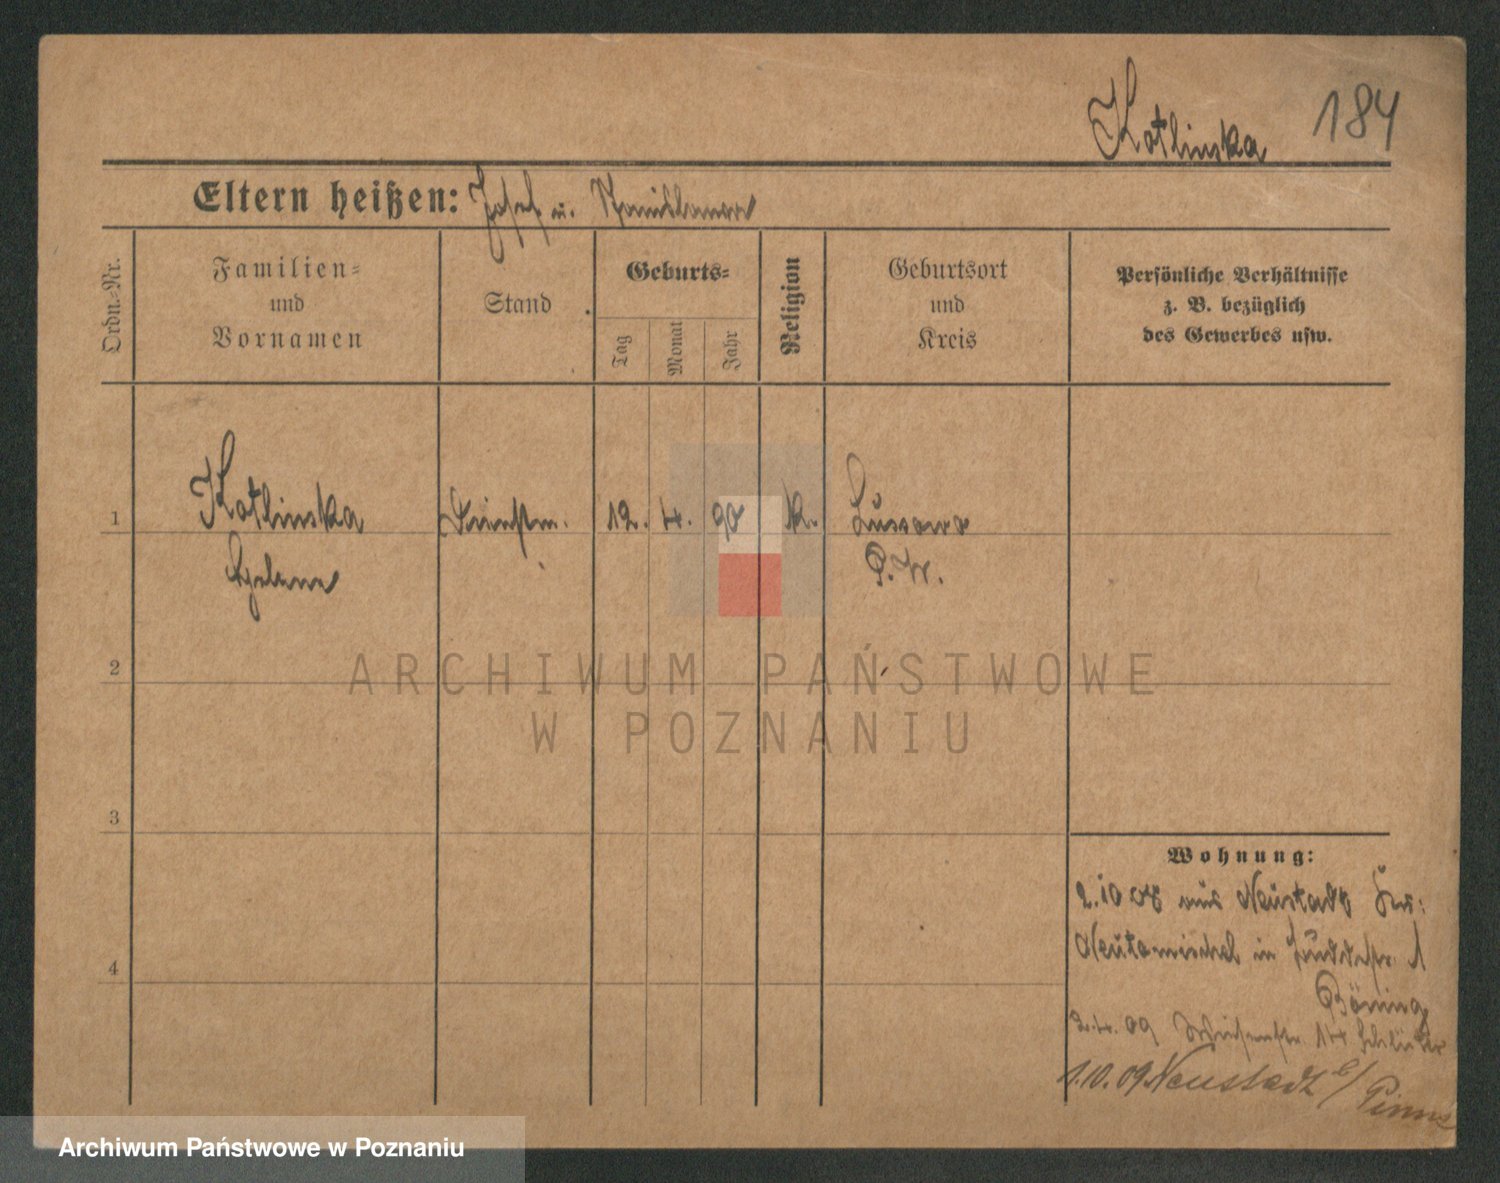 Kotlinska 184
Eltern heißen: Josef u. Stanislawa
Ordn.-Nr.
Familien-
und
Vornamen
Stand
Geburts-
Tag
Monat
Jahr
Religion
Geburtsort
und
Kreis
Persönliche Verhältnisse
z. B. bezüglich
des Gewerbes usw.
1 Kotlinska Dienstm. 12. 4. 90 k. Lussowo
Helene P. W.
2
3
4
ARCHIWUM PAŃSTWOWE
W POZNANIU
Wohnung:
2.10 08 aus Neustadt Krs:
Neutomischel in 1
Böning
2.4.09 14 Schlüter
1.10.09 Neustadt b/ Pinne
Archiwum Państwowe w Poznaniu